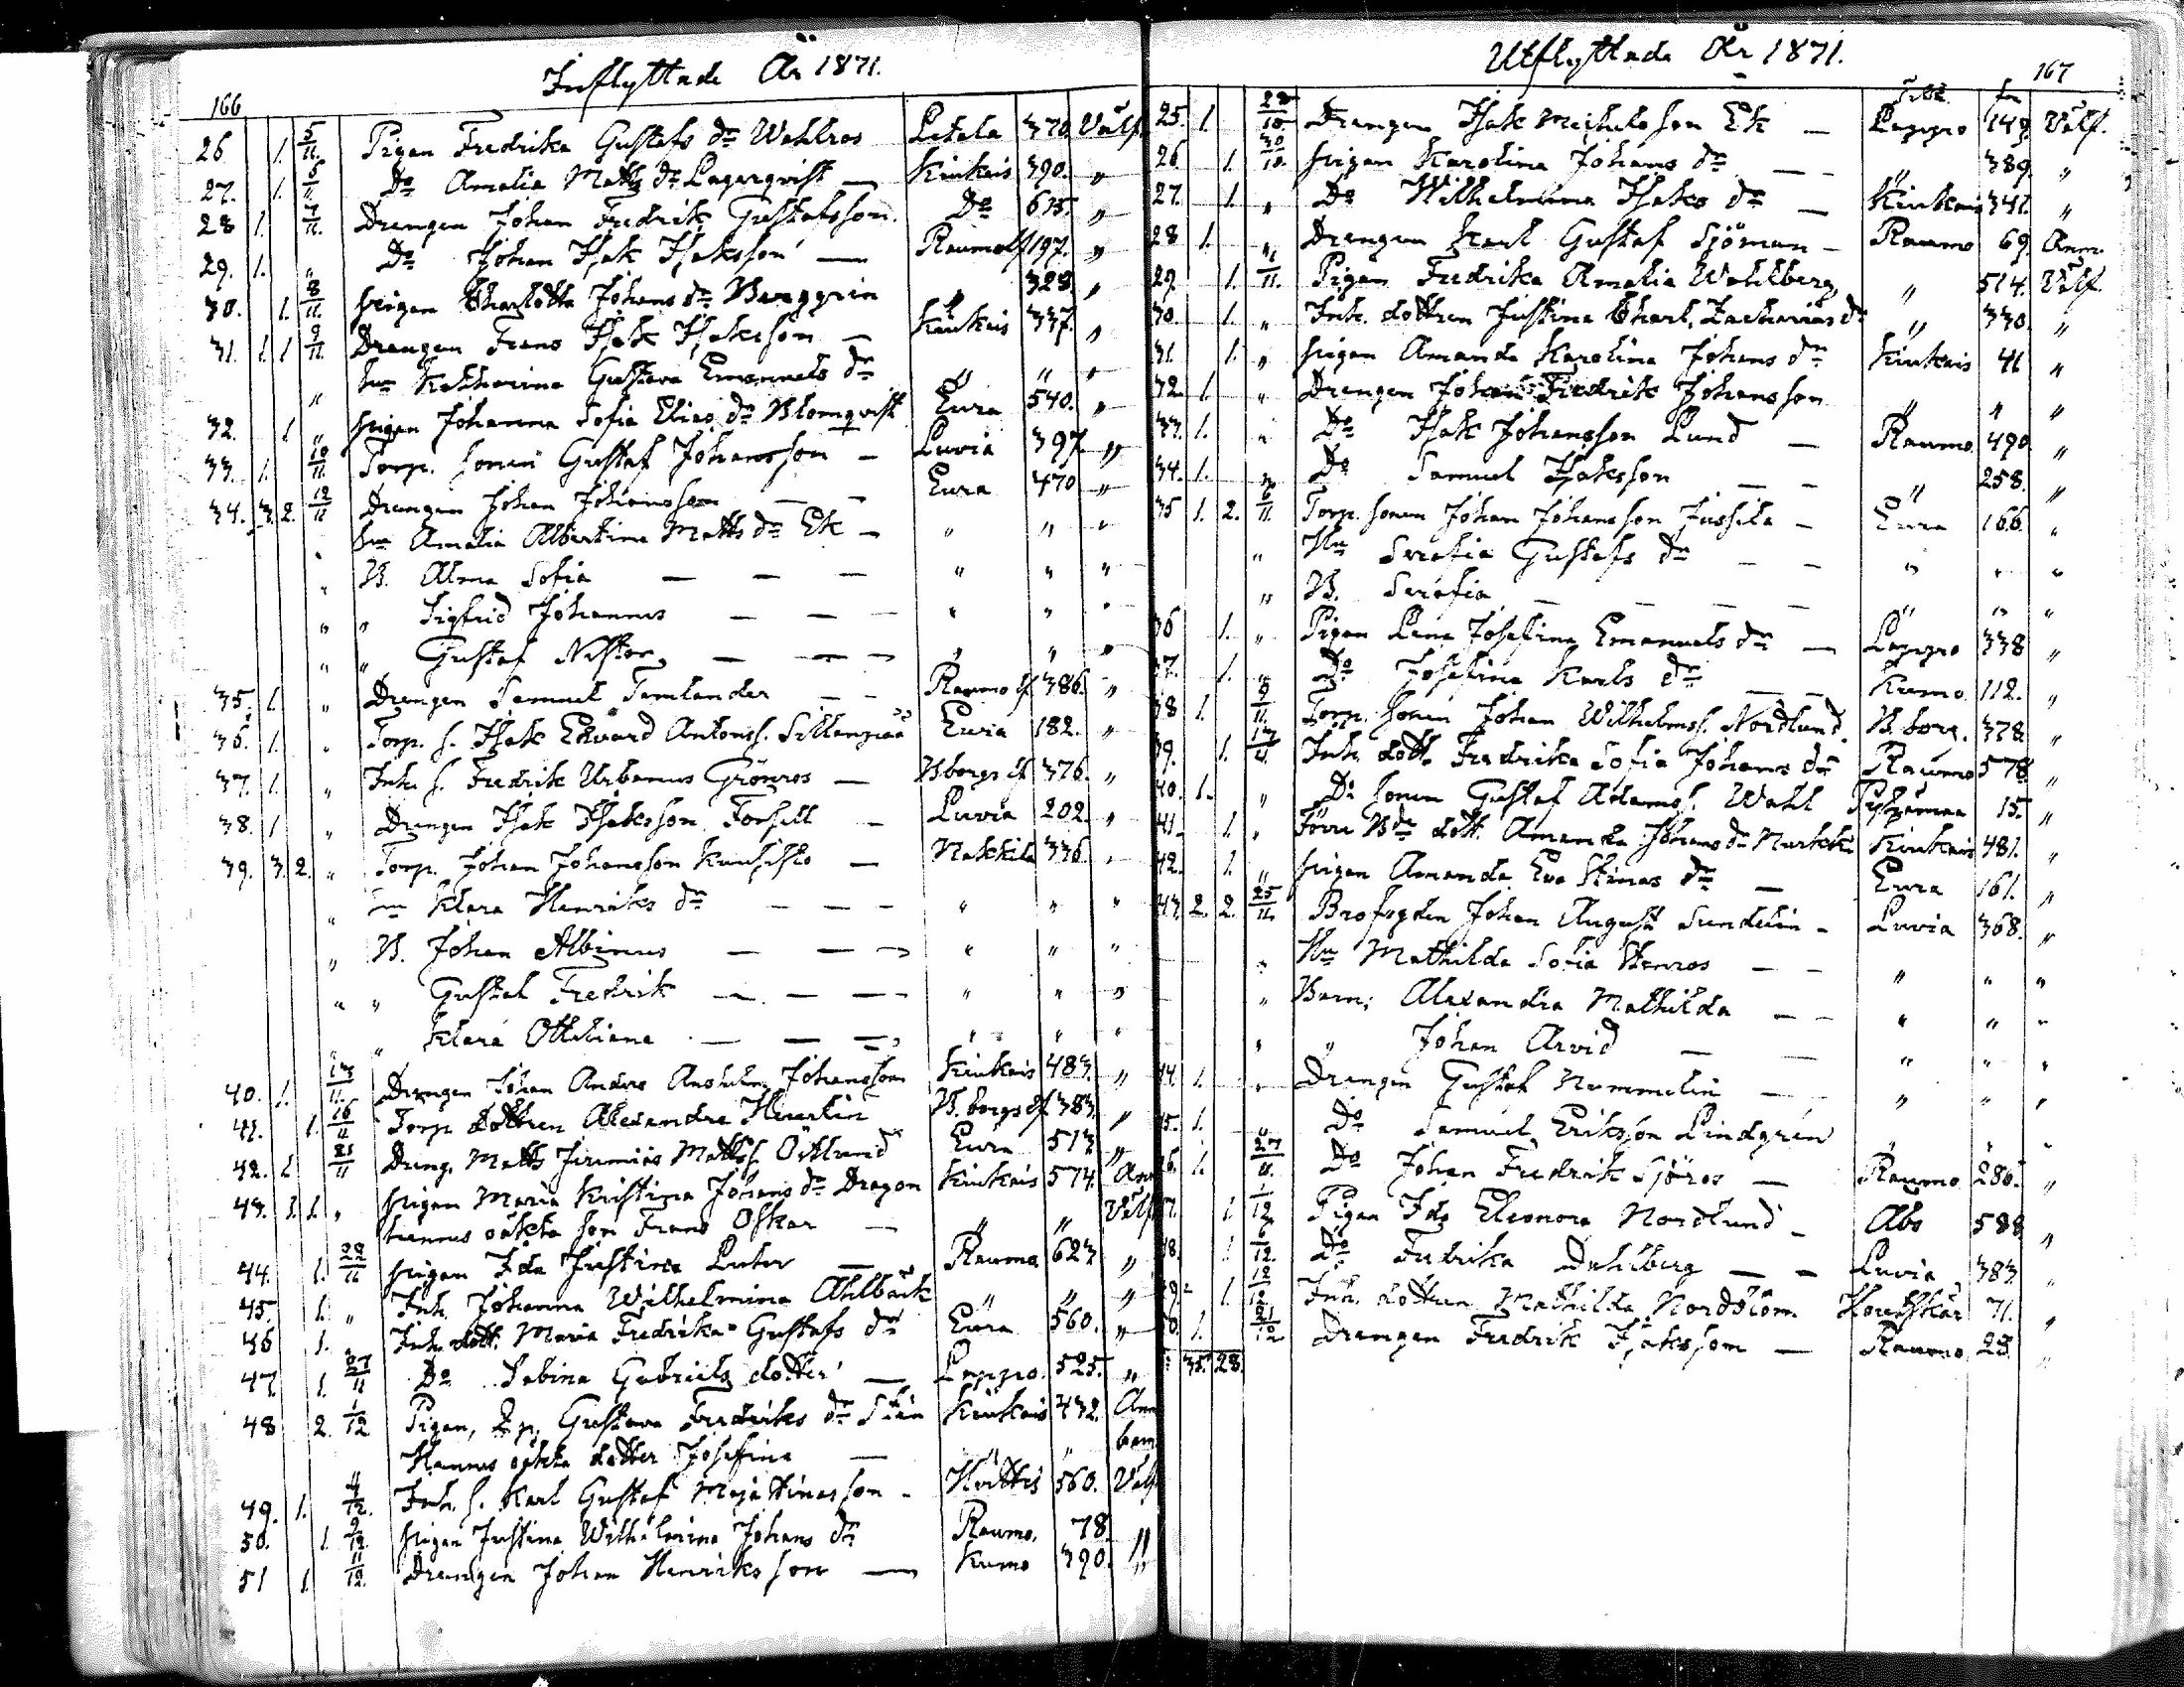 Inflyttade År 1871.
166
26 1. 5/11. Pigan Fredrika Gustafs dr Wahlros Letala 370. Välf.
27. 1. 6/11 Do Amalia Matts dr Lagerqvist — Kiukais 390. "
28 1. 7/11. Drengen Johan Fredrik Gustafsson. Do 615. "
29. 1. " Do Johan Isak Isaksson — Raumo lf 197. "
30. 1. 8/11. Pigan Charlotta Johans dr Berggrén " 328. "
31. 1. 1 9/11. Drengen Frans Isak Isaksson — Kiukais 337. "
" hu Katharina Gustava Emanuels dr " " "
32. 1 " Pigan Johanna Sofia Elias dr Blomqvist Eura 540. "
33. 1. 10/11. Torp. sonen Gustaf Johansson — Luvia 397 "
34. 3. 2. 12/11 Drengen Johan Johansson — — Eura 470 "
" hu Amalia Albertina Matts dr Ek — " " "
" B. Alma Sofia — — — " " "
" " Sigfrid Johannes — — — " " "
" " Gustaf Nestor — — — " " "
35. 1. " Drengen Samuel Tamlander — — Raumo lf. 386. "
36. 1. " Torp. s. Isak Edvard Antons s. Sillanpää Eura 182. "
37. 1. " Inh. s. Fredrik Urbanus Grönros — Bborgs lf 376. "
38. 1 " Drengen Isak Isaksson Forsell — Luvia 202. "
39. 3. 2. " Torp. Johan Johansson Kuusisto — Nakkila 336. "
" hu Klara Henriks dr — — — " " "
" B. Johan Albinus — — — " " "
" " Gustaf Fredrik — — — " " "
" " Klara Ottiliana — — — " " "
40. 1. 13/11. Drengen Johan Anders Anshelm Johansson Kiukais 483. "
41. 1. 16/11 Torp dottren Alexandra Heurlin B.borgs lf 383. "
42. 1 21/11 Dreng. Matts Jeremias Matts s. Östlund Eura 513 "
43. 1. 1. " Pigan Maria Kristina Johans dr Dragon Kiukais 574. Anm
hennes oäkta son Frans Oskar — " " Välf
44. 1. 22/11 Pigan Ida Justina Luter — Raumo 623 "
45. 1. " Inh. Johanna Wilhelmina Ahlbäck " " "
46 1. " Inh. dott. Maria Fredrika Gustafs dr Eura 560. "
47. 1. 27/11 Do Sabina Gabriels dotter — Lappo. 525. "
48 2. 1/12 Pigan, Gustava Fredriks dr Stén Kiukais 432. Anm
Hennes oäkta dotter Josefina — " " barn
49. 1. 4/12. Inh. s. Karl Gustaf Majastinasson — Hvittis 560. Välf
50. 1. 9/12. Pigan Justina Wilhelmina Johans dr Raumo. 78. "
51 1. 11/12. Drengen Johan Henriksson — Kumo 390. "
Utflyttade År 1871.
167
25. 1. 28/10. Drengen Isak Michelsson Ek — Lappo 149. Välf.
26. 1. 30/10. Pigan Karolina Johans dr — — " 389. "
27. 1. " Do Wilhelmina Isaks dr — Kiukais 341. "
28 1. " Drengen Karl Gustaf Sjöman — Raumo 69. Anm.
29. 1. 1/11. Pigan Fredrika Amalia Wahlberg " 514. Välf.
30. 1. " Inh. dottren Justina Charl. Zacharias dr " 330. "
31. 1. " Pigan Amanda Karolina Johans dr Kiukais 41 "
32. 1. " Drengen Johan Fredrik Johansson " " "
33. 1. " Do Isak Johansson Lund — Raumo. 490. "
34. 1. " Do Samuel Isaksson — — " 258. "
35 1. 2. 6/11. Torp. sonen Johan Johansson Jussila — Eura 166. "
" Hu Serafia Gustafs dr — — " " "
" B. Serafia — — — — " " "
36 1. " Pigan Lena Josefina Emanuels dr — Lappo 338 "
37. 1. " Do Josefina Karls dr — — Kumo 112. "
38 1. 9/11. Torp. sonen Johan Wilhelms s. Nordlund. B.borg. 378. "
39. 1. 13/11. Inh. dott. Fredrika Sofia Johans dr Raumo 578 "
40. 1. " Do sonen Gustaf Adams s. Wahl Pyhämaa 15. "
41. 1. " Förre Bde dott. Amanda Johans dr Nurkki Kiukais 481. "
42. 1. " Pigan Amanda Eva Stinas dr — Eura 161. "
43. 2. 2. 25/11. Brofogden Johan August Sundelin — Luvia 368. "
" Hu Mathilda Sofia Stenros — — " " "
" Barn: Alexandra Mathilda — — " " "
" " Johan Arvid — — " " "
44. 1. " Drengen Gustaf Nummelin — — " " "
45. 1. " Do Samuel Eriksson Lindgrén " " "
46. 1. 27/11. Do Johan Fredrik Sjöros — Raumo 286. "
47. 1. 1/12. Pigan Ida Eleonora Nordlund — Åbo 588 "
48. 1. 6/12. Do Fredrika Dahlberg — — Luvia 383. "
49. 1. 12/12. Inh. dottren Mathilda Nordblom. Houtskär 71. "
50. 1. 21/12 Drengen Fredrik Isaksson — Raumo 23. "
35. 28.